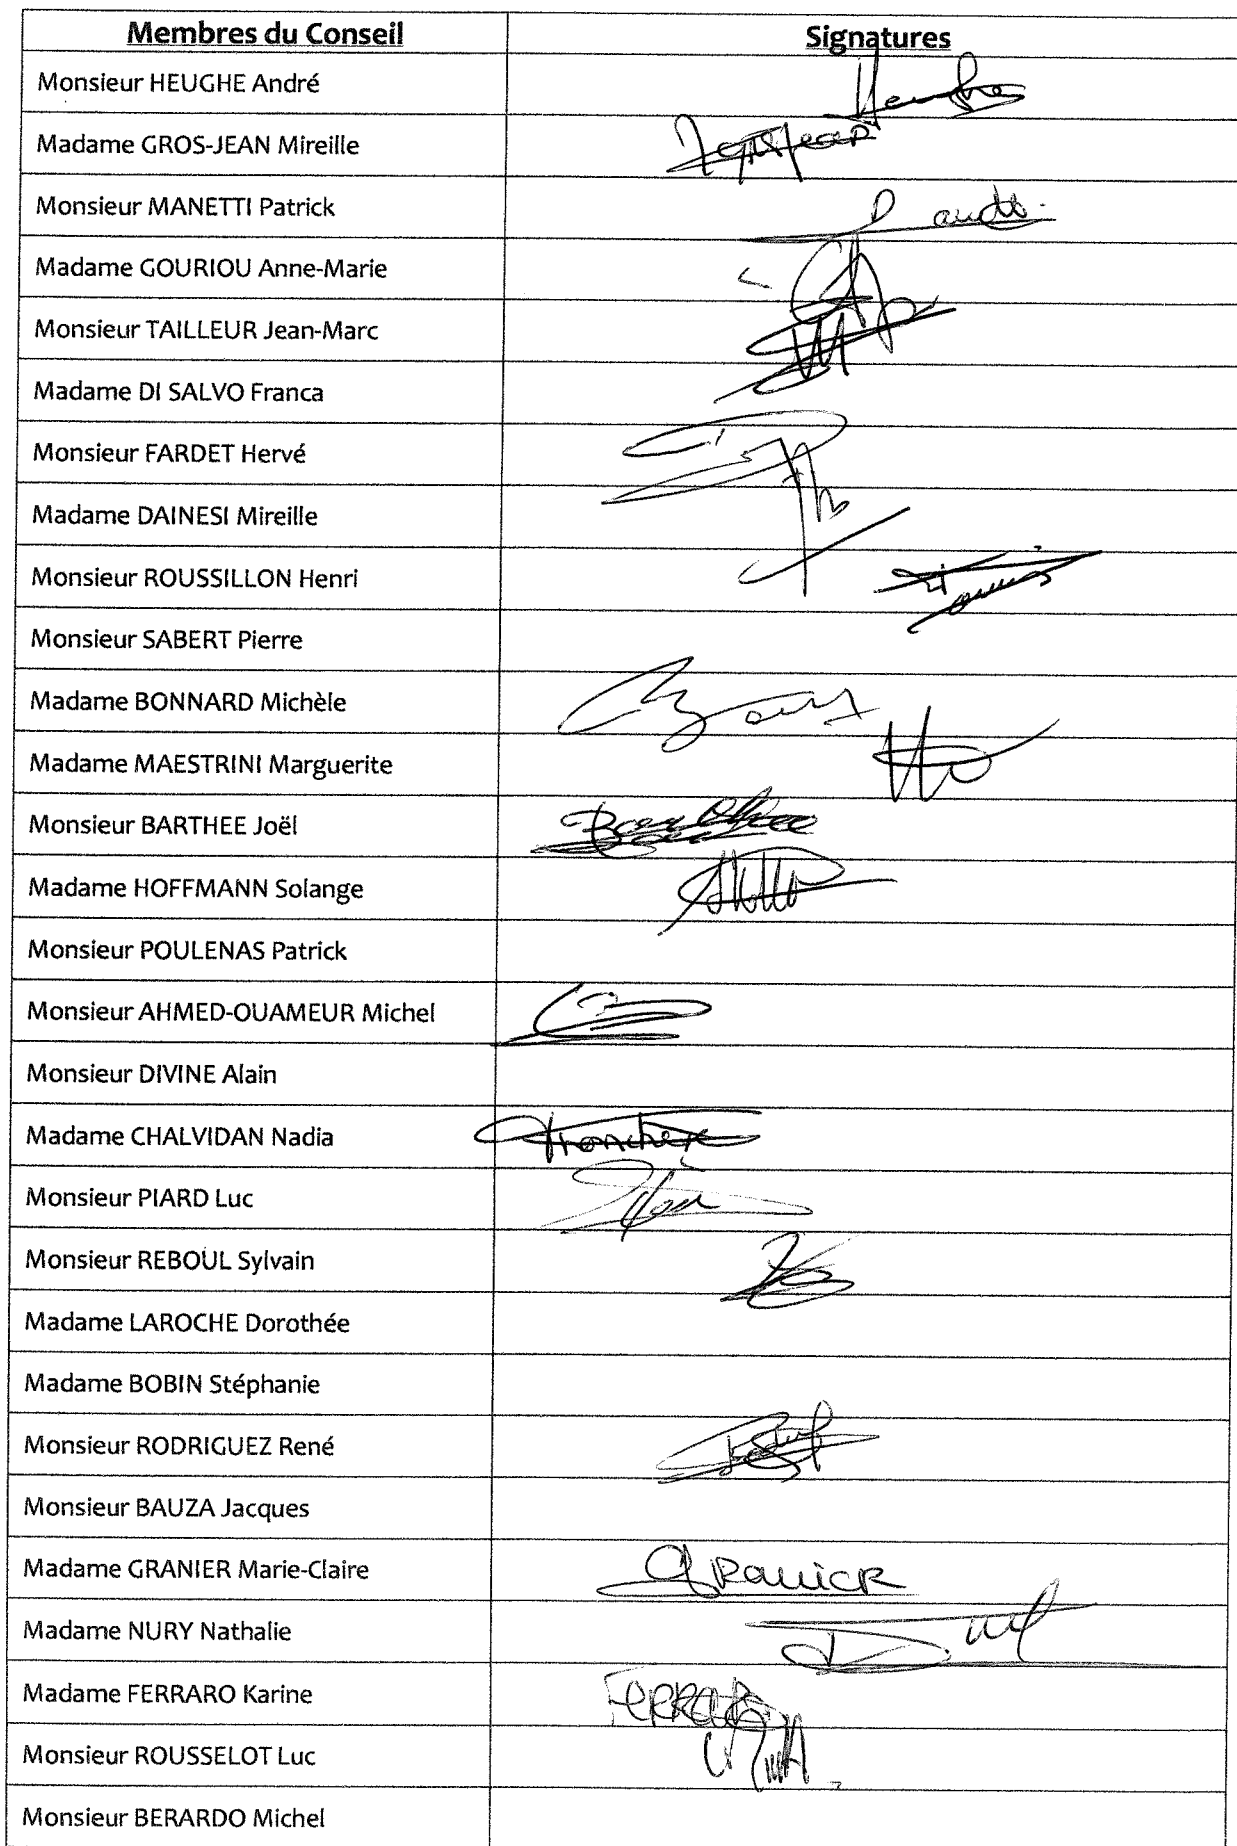 Membres du Conseil Signatures
Monsieur HEUGHE André Heughe
Madame GROS-JEAN Mireille
Monsieur MANETTI Patrick
Madame GOURIOU Anne-Marie
Monsieur TAILLEUR Jean-Marc
Madame DI SALVO Franca
Monsieur FARDET Hervé
Madame DAINESI Mireille
Monsieur ROUSSILLON Henri
Monsieur SABERT Pierre
Madame BONNARD Michèle
Madame MAESTRINI Marguerite
Monsieur BARTHEE Joël Barthee
Madame HOFFMANN Solange
Monsieur POULENAS Patrick
Monsieur AHMED-OUAMEUR Michel
Monsieur DIVINE Alain
Madame CHALVIDAN Nadia
Monsieur PIARD Luc
Monsieur REBOUL Sylvain
Madame LAROCHE Dorothée
Madame BOBIN Stéphanie
Monsieur RODRIGUEZ René
Monsieur BAUZA Jacques
Madame GRANIER Marie-Claire GRANIER
Madame NURY Nathalie
Madame FERRARO Karine FERRARO
Monsieur ROUSSELOT Luc
Monsieur BERARDO Michel